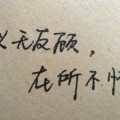 义无反顾，
在所不